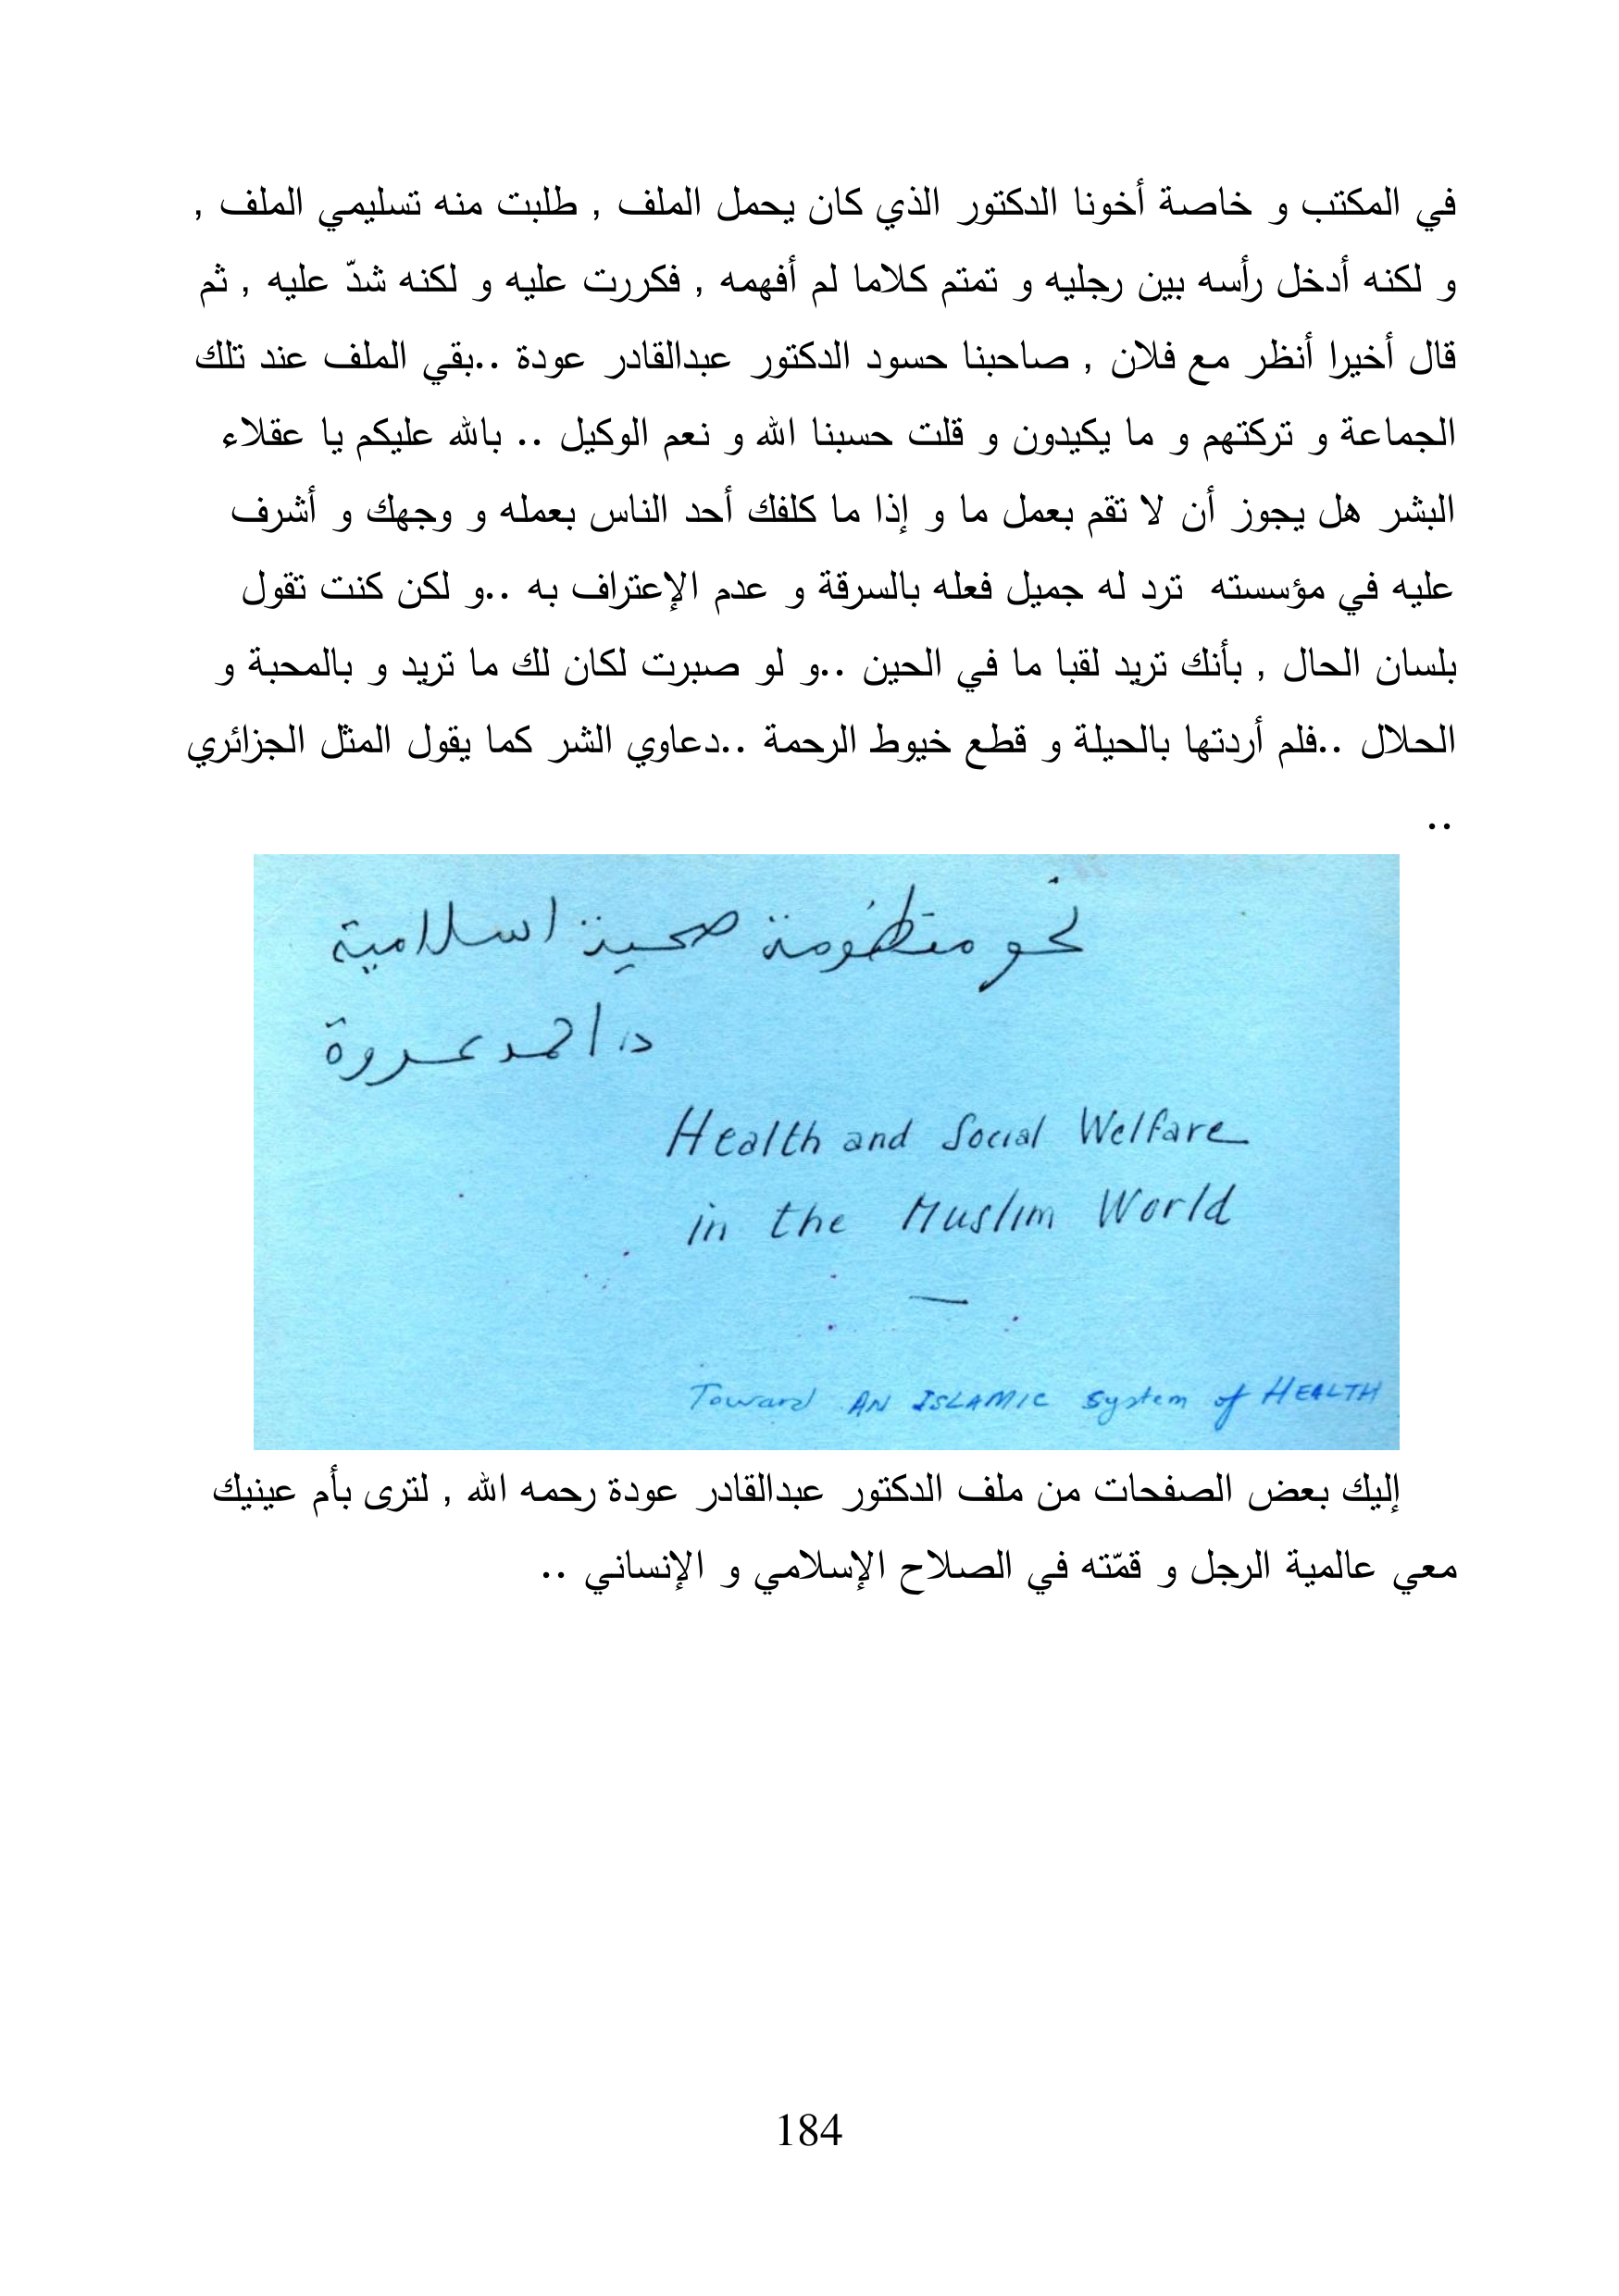 في المكتب و خاصة أخونا الدكتور الذي كان يحمل الملف , طلبت منه تسليمي الملف ,
و لكنه أدخل رأسه بين رجليه و تمتم كلاما لم أفهمه , فكررت عليه و لكنه شدّ عليه , ثم
قال أخيرا أنظر مع فلان , صاحبنا حسود الدكتور عبدالقادر عودة ..بقي الملف عند تلك
الجماعة و تركتهم و ما يكيدون و قلت حسبنا الله و نعم الوكيل .. بالله عليكم يا عقلاء
البشر هل يجوز أن لا تقم بعمل ما و إذا ما كلفك أحد الناس بعمله و وجهك و أشرف
عليه في مؤسسته ترد له جميل فعله بالسرقة و عدم الإعتراف به ..و لكن كنت تقول
بلسان الحال , بأنك تريد لقبا ما في الحين ..و لو صبرت لكان لك ما تريد و بالمحبة و
الحلال ..فلم أردتها بالحيلة و قطع خيوط الرحمة ..دعاوي الشر كما يقول المثل الجزائري
..
نحو منظومة صحية اسلامية
د. احمد عروة
Health and Social Welfare
in the Muslim World
—
Toward AN ISLAMIC System of HEALTH
إليك بعض الصفحات من ملف الدكتور عبدالقادر عودة رحمه الله , لترى بأم عينيك
معي عالمية الرجل و قمّته في الصلاح الإسلامي و الإنساني ..
184